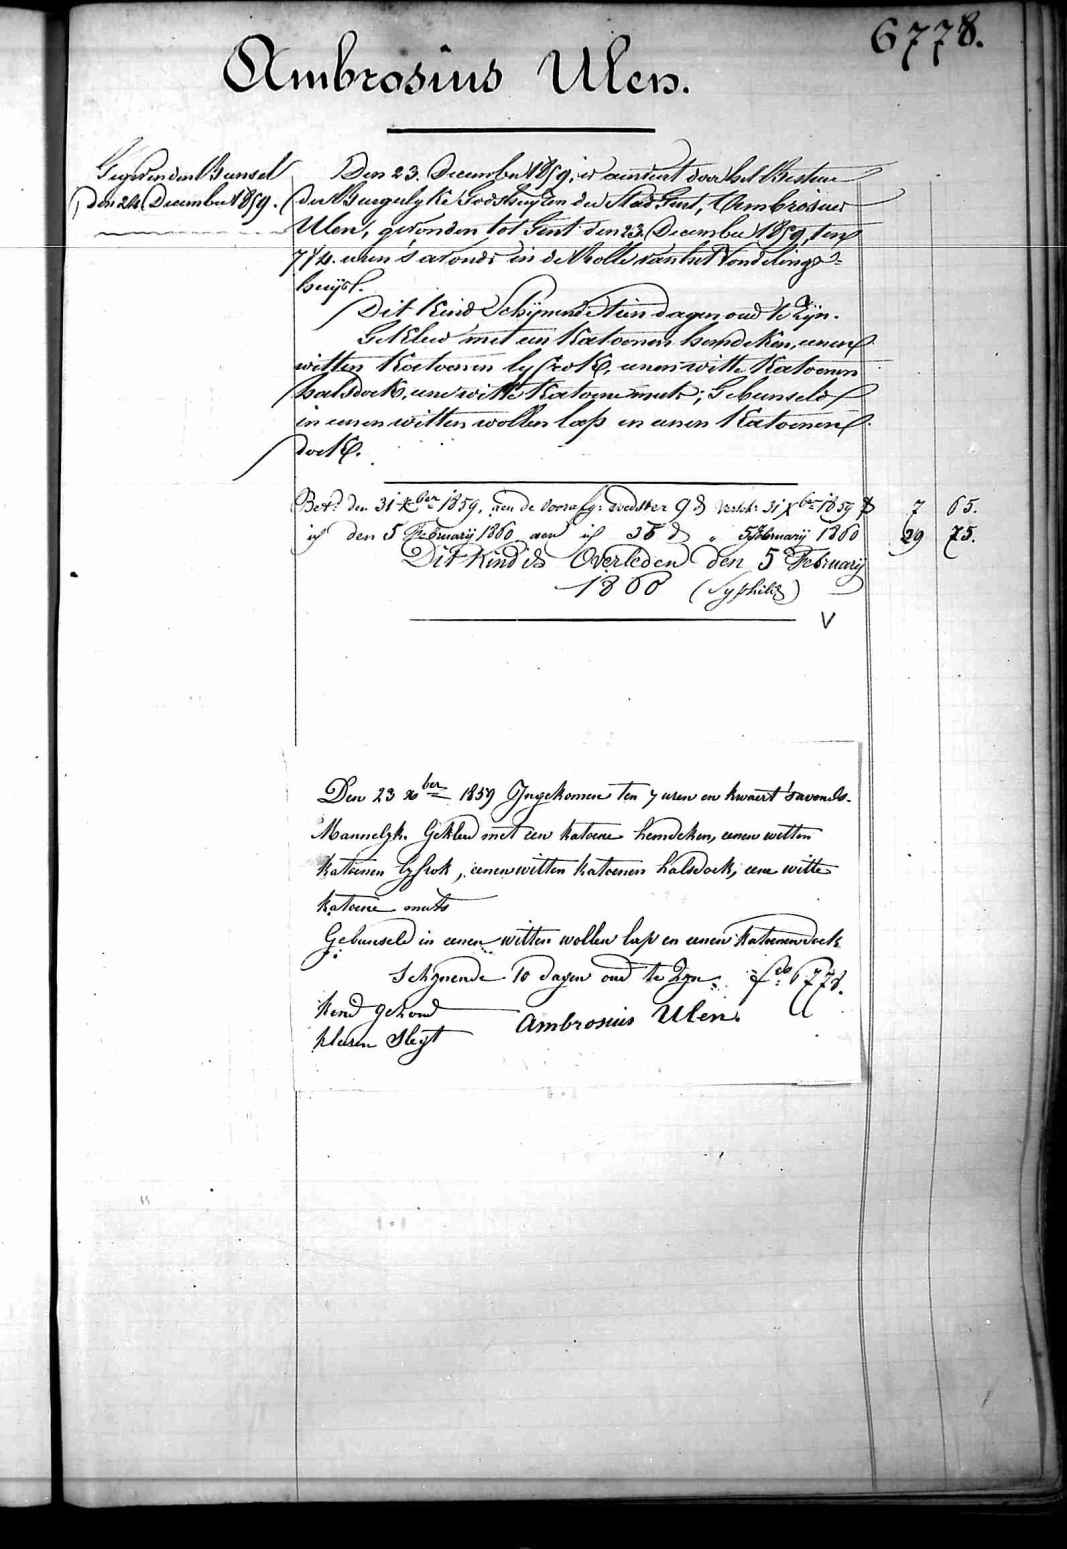 6778.
Ambrosius Ulen.
Gegeven den Bunsel
den 24 December 1859.
Den 23. December 1859, is aenveert door het Bestuer
der Burgerlyke Godshuyzen der Stad Gent, Ambrosius
Ulen, gevonden tot Gent den 23. December 1859, ten
7 1/4. uren 's avonds in de Rolle van het Vondelings=
huys.
Dit Kind Schijnende Tien dagen oud te Zijn.
Gekleed met een Katoenen hemdeken, eenen
witten Katoenen lyfrok, eenen witte Katoenen
halsdoek, eene witte Katoene muts; Gebunseld
in eenen witten wollen lap en eenen Katoenen
doek.
Bet. den 31 Xber 1859, aen de voorafg: voedster 9 d versch: 31 Xber 1859 7 65.
id den 5 February 1860 aen id 35 d " 5 February 1860 29 75.
Dit Kind is Overleden den 5 February
1860 (Syphilis)
V
Den 23 xber 1859 Ingekomen ten 7 uren en kwaert 's avonds.
Mannelyk. Gekleed met een katoene hemdeken, eenen witten
katoenen lyfrok, eenen witten katoenen halsdoek, eene witte
katoene muts
Gebunseld in eenen witten wollen lap en eenen katoenen doek
Schynende 10 dagen oud te Zyn. fo 6778.
kend gezond
Ambrosius Ulen.
kleren Slegt